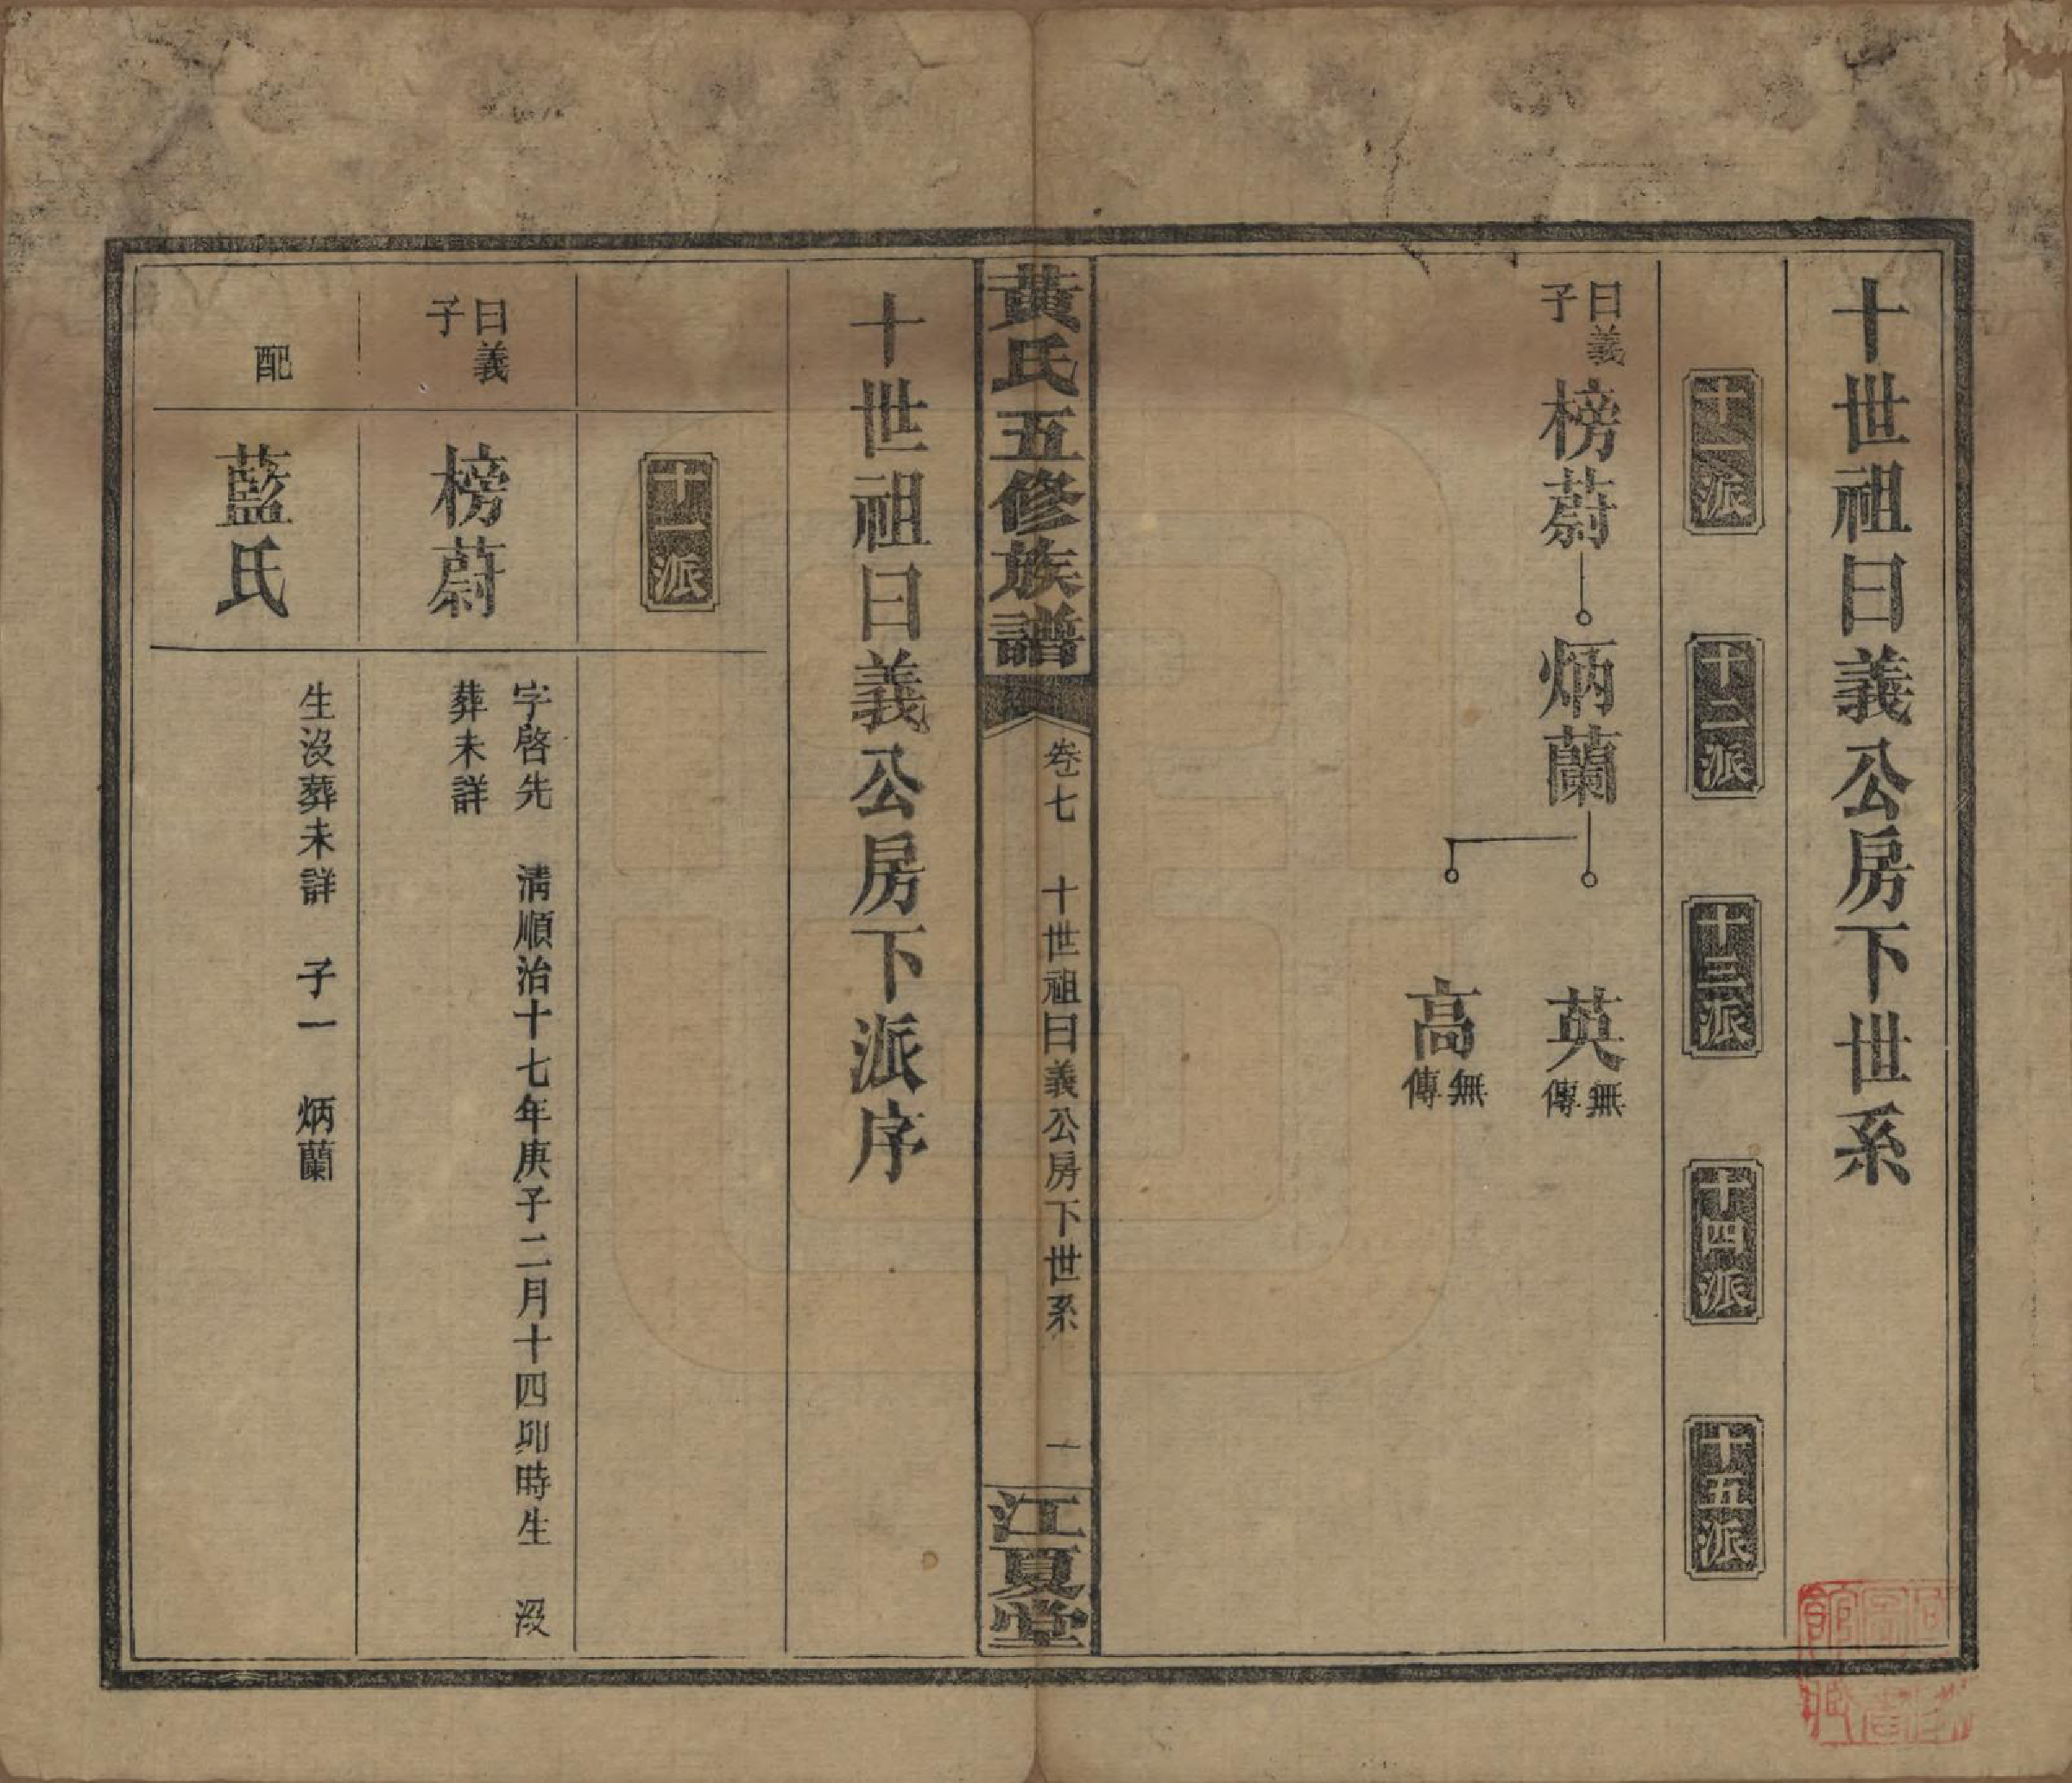 十世祖曰義公房下世系
十一派
十二派
十三派
十四派
十五派
曰義
子
榜蔚
炳蘭
英
無
傳
高
無
傳
黃氏五修族譜
卷七
十世祖曰義公房下世系
一
江夏堂
十世祖曰義公房下派序
十一派
曰義
子
榜蔚
字啓先 清順治十七年庚子二月十四卯時生 沒
葬未詳
配
藍氏
生沒葬未詳 子一 炳蘭